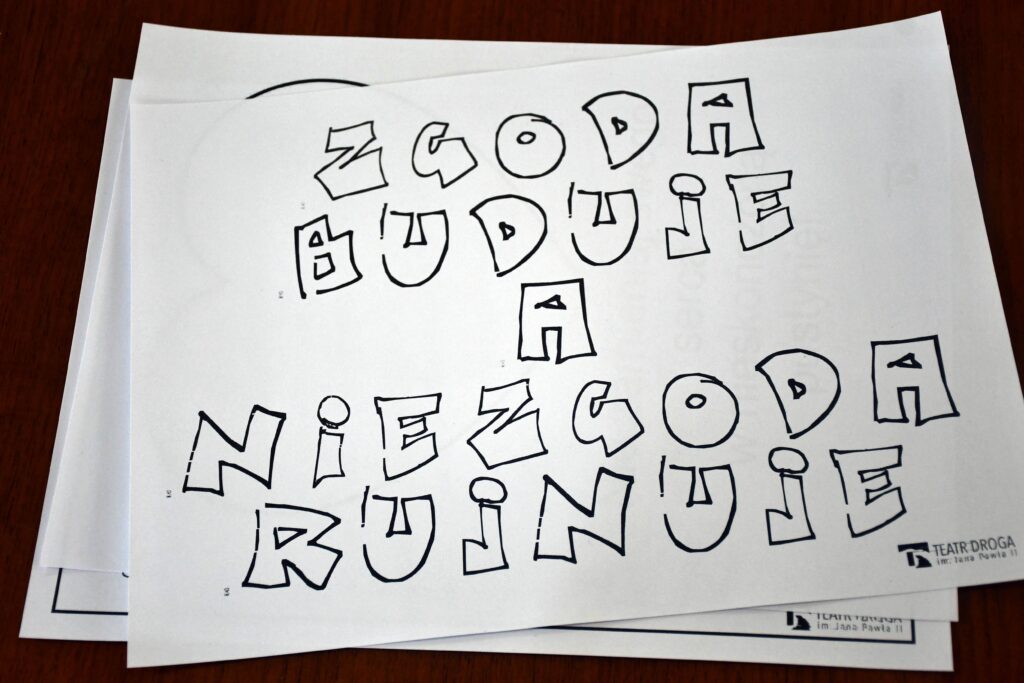 ZGODA
BUDUJE
A
NIEZGODA
RUJNUJE
TEATR DROGA
im. Jana Pawła II
TEATR DROGA
im. Jana Pawła II